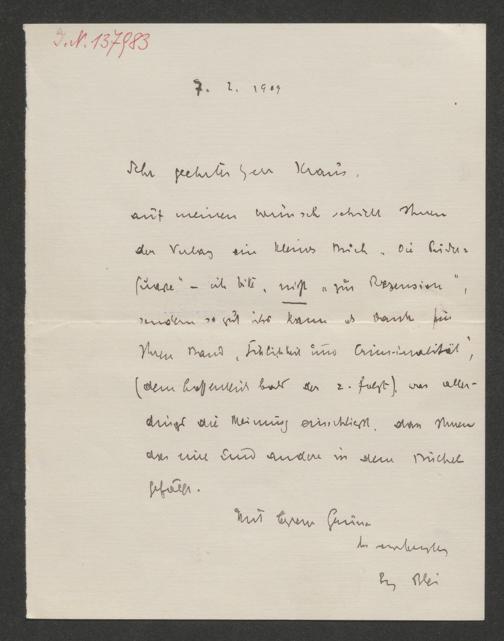 I.N. 137983
7. 2. 1909
Sehr geehrter Herr Kraus,
auf meinen Wunsch schickt Ihnen
der Verlag ein kleines Buch, „Die Puder-
Quaste" – ich bitte, nicht „zur Rezension",
sondern so gut ichs kann als Dank für
Ihren Band „Sittlichkeit und Criminalität",
(dem hoffentlich bald der 2. folgt), was aller-
dings die Meinung einschließt, dass Ihnen
das eine und andere in dem Büchel
gefällt.
Mit Gruss
Ihr
Blei